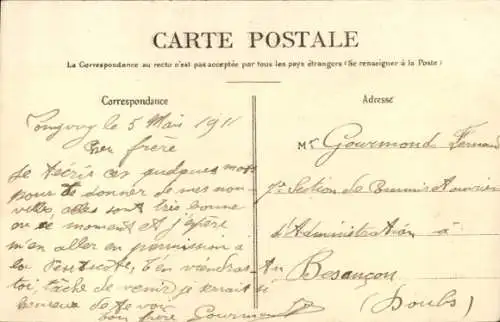 CARTE POSTALE
La Correspondance au recto n'est pas acceptée par tous les pays étrangers (Se renseigner à la Poste)
Correspondance
Adresse
Longwy le 5 Mars 1911
Cher frère
Je t'écris ces quelques mots
pour te donner de mes nou-
velles, elles sont très bonne
en ce moment et j'espère
m'en aller en permission à
la Pentecôte, t'en viendras
toi, tâche de venir je serait si
heureux de te voir
ton frère Gourmond
Mr Gourmond Fernand
7e Section de Commis Ouvriers
d'Administration à
Besançon
(Doubs)